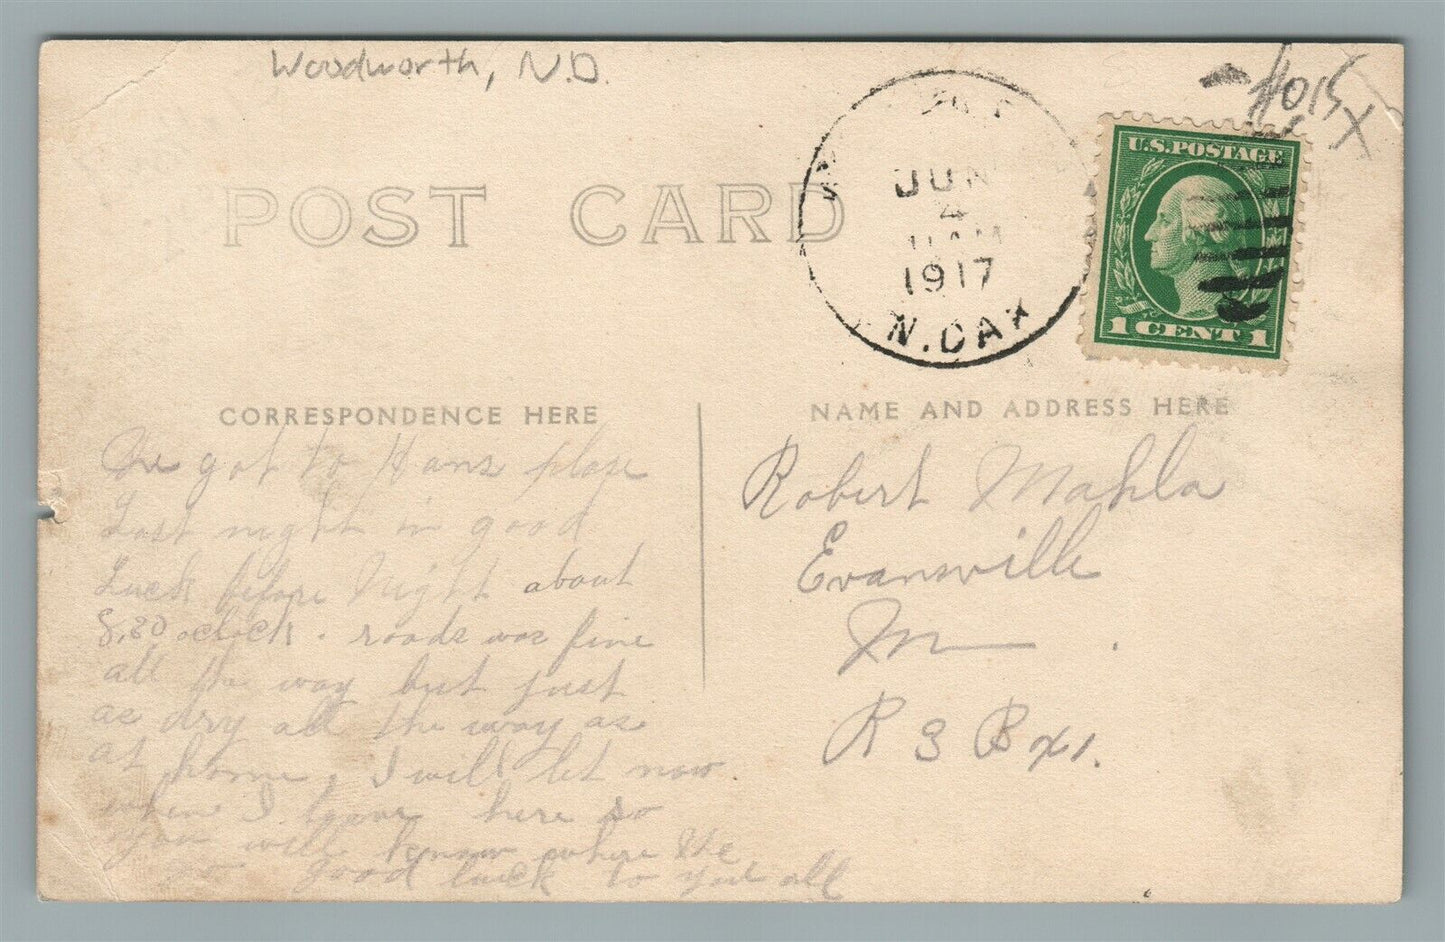 Woodworth, N.D.
POST CARD
JUN
4
11 AM
1917
N. DAK
U.S. POSTAGE
1 CENT 1
CORRESPONDENCE HERE
NAME AND ADDRESS HERE
We got to Hans plase
Last night in good
Luck before Night about
8,20 oclock. roads was fine
all the way but just
as dry all the way as
at home, I will let now
when I leave here so
you will know where We
go good luck to you all
Robert Mahla
Evansville
Mn
R 3 Box 1.